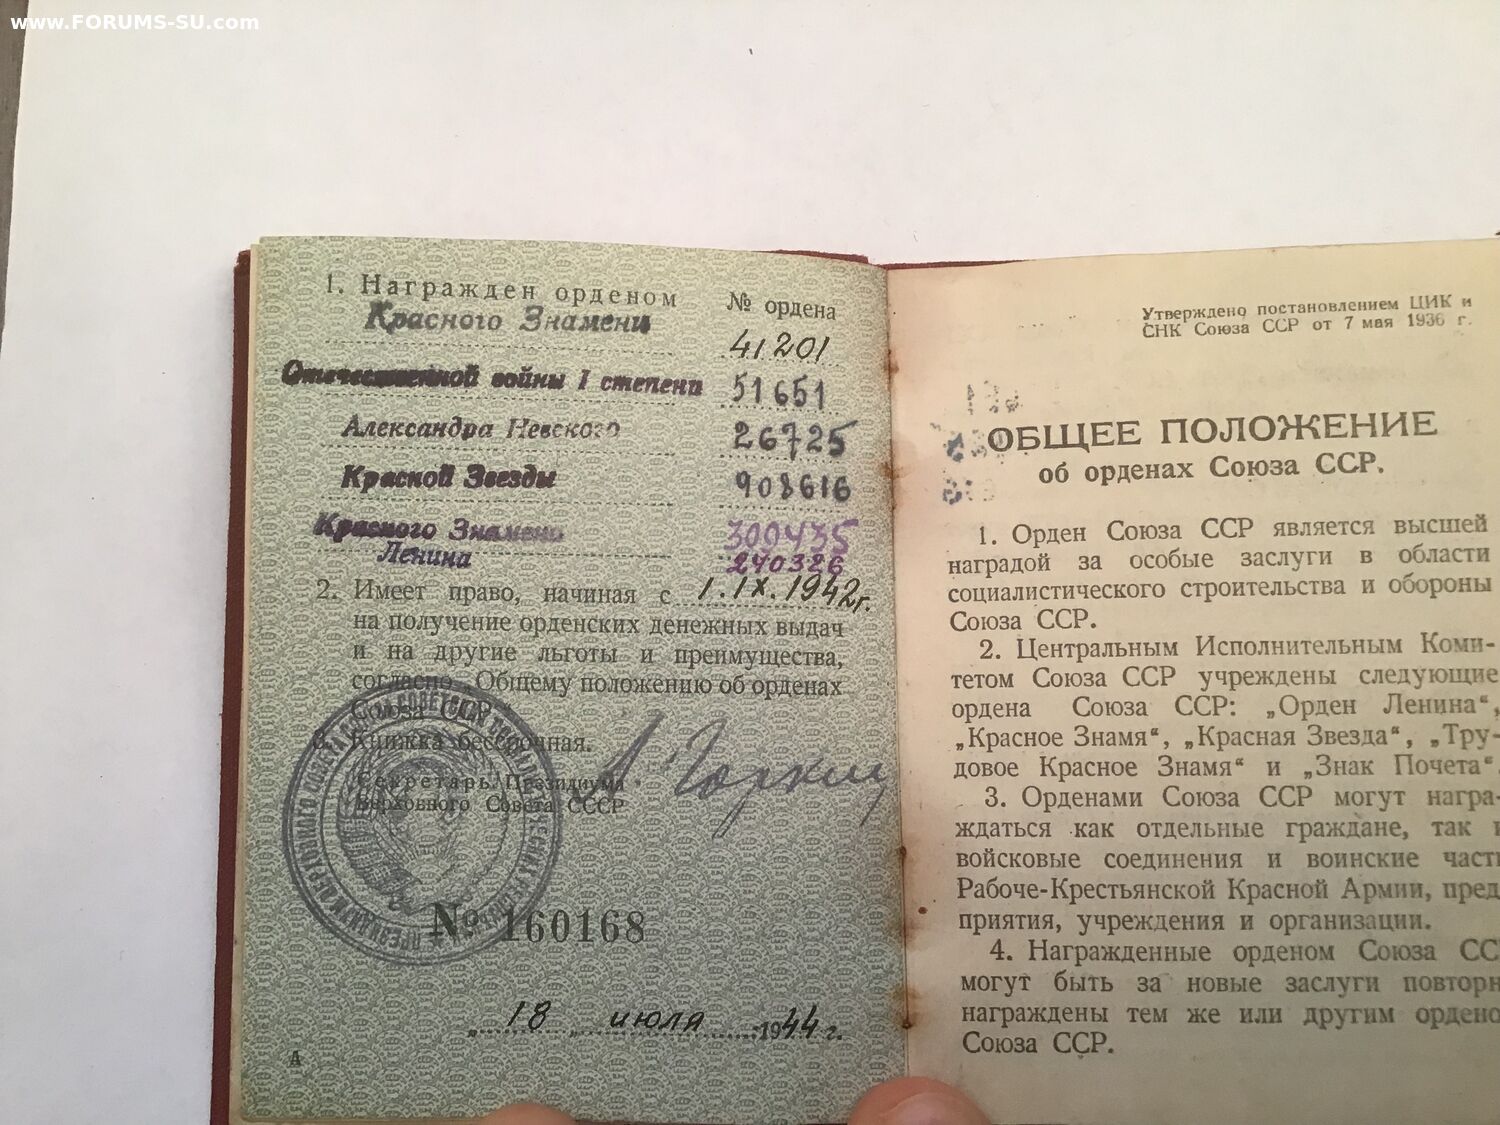 www.FORUMS-SU.com
1. Награжден орденом
№ ордена
Красного Знамени
41201
Отечественной войны I степени
51651
Александра Невского
26725
Красной Звезды
908616
Красного Знамени
300435
Ленина
240326
2. Имеет право, начиная с 1.IX.1942г.
на получение орденских денежных выдач
и на другие льготы и преимущества,
согласно „Общему положению об орденах
Союза ССР
3. Книжка бессрочная.
Секретарь Президиума
Верховного Совета СССР
А Горкин
№ 160168
„ 18 „ июля 1944 г.
А
Утверждено постановлением ЦИК и
СНК Союза ССР от 7 мая 1936 г.
ОБЩЕЕ ПОЛОЖЕНИЕ
об орденах Союза ССР.
1. Орден Союза ССР является высшей
наградой за особые заслуги в области
социалистического строительства и обороны
Союза ССР.
2. Центральным Исполнительным Коми-
тетом Союза ССР учреждены следующие
ордена Союза ССР: „Орден Ленина“,
„Красное Знамя“, „Красная Звезда“, „Тру-
довое Красное Знамя“ и „Знак Почета“.
3. Орденами Союза ССР могут награ-
ждаться как отдельные граждане, так
войсковые соединения и воинские част
Рабоче-Крестьянской Красной Армии, пред
приятия, учреждения и организации.
4. Награжденные орденом Союза СС
могут быть за новые заслуги повторн
награждены тем же или другим ордено
Союза ССР.